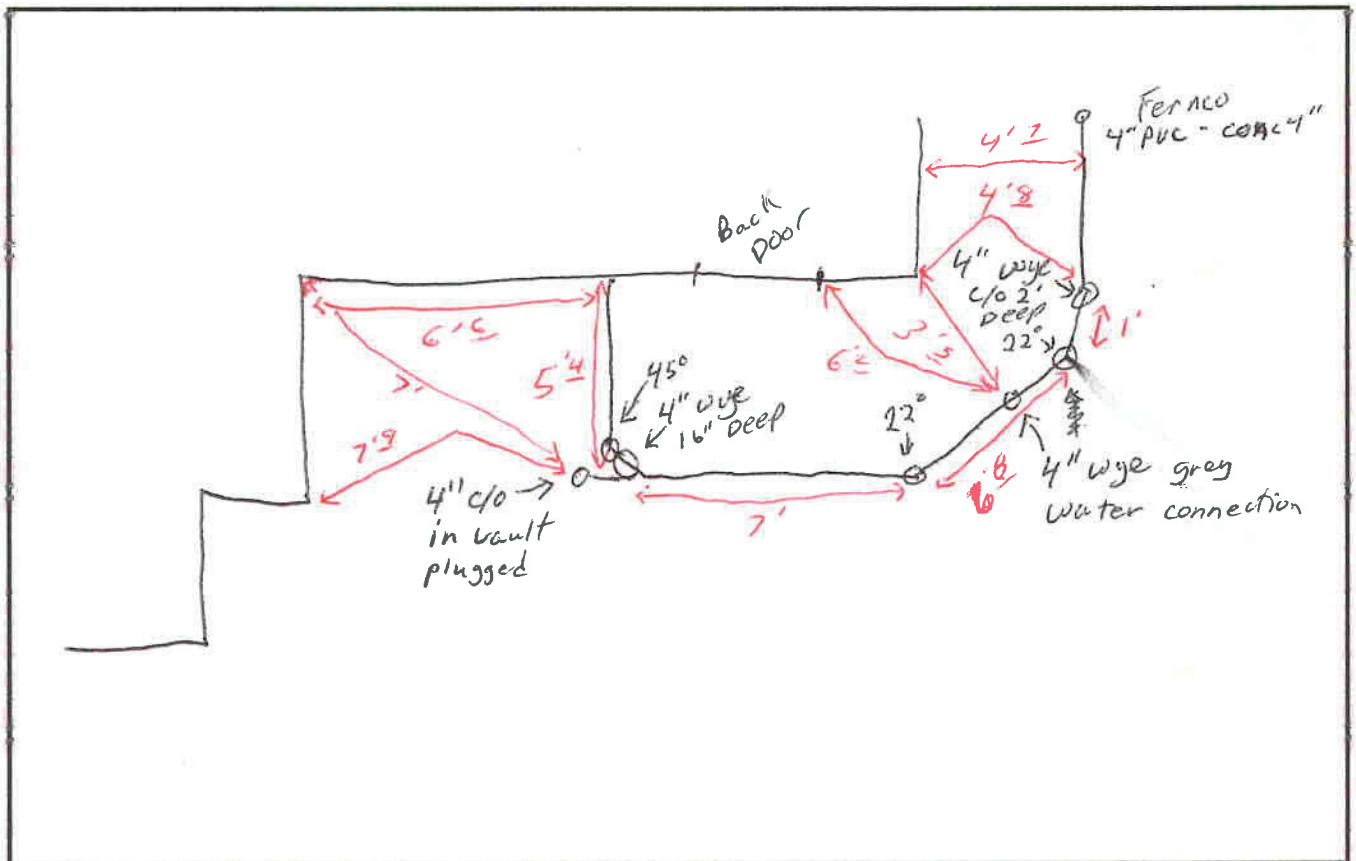 Fernco
4" PVC - conc 4"
4'7
4'8
Back
Door
4" wye
c/o 2'
Deep
22°
1'
6'
3'5
5'4
45°
4" wye
16" Deep
22°
7'9
4" c/o
in vault
plugged
7'
8
4" wye grey
water connection